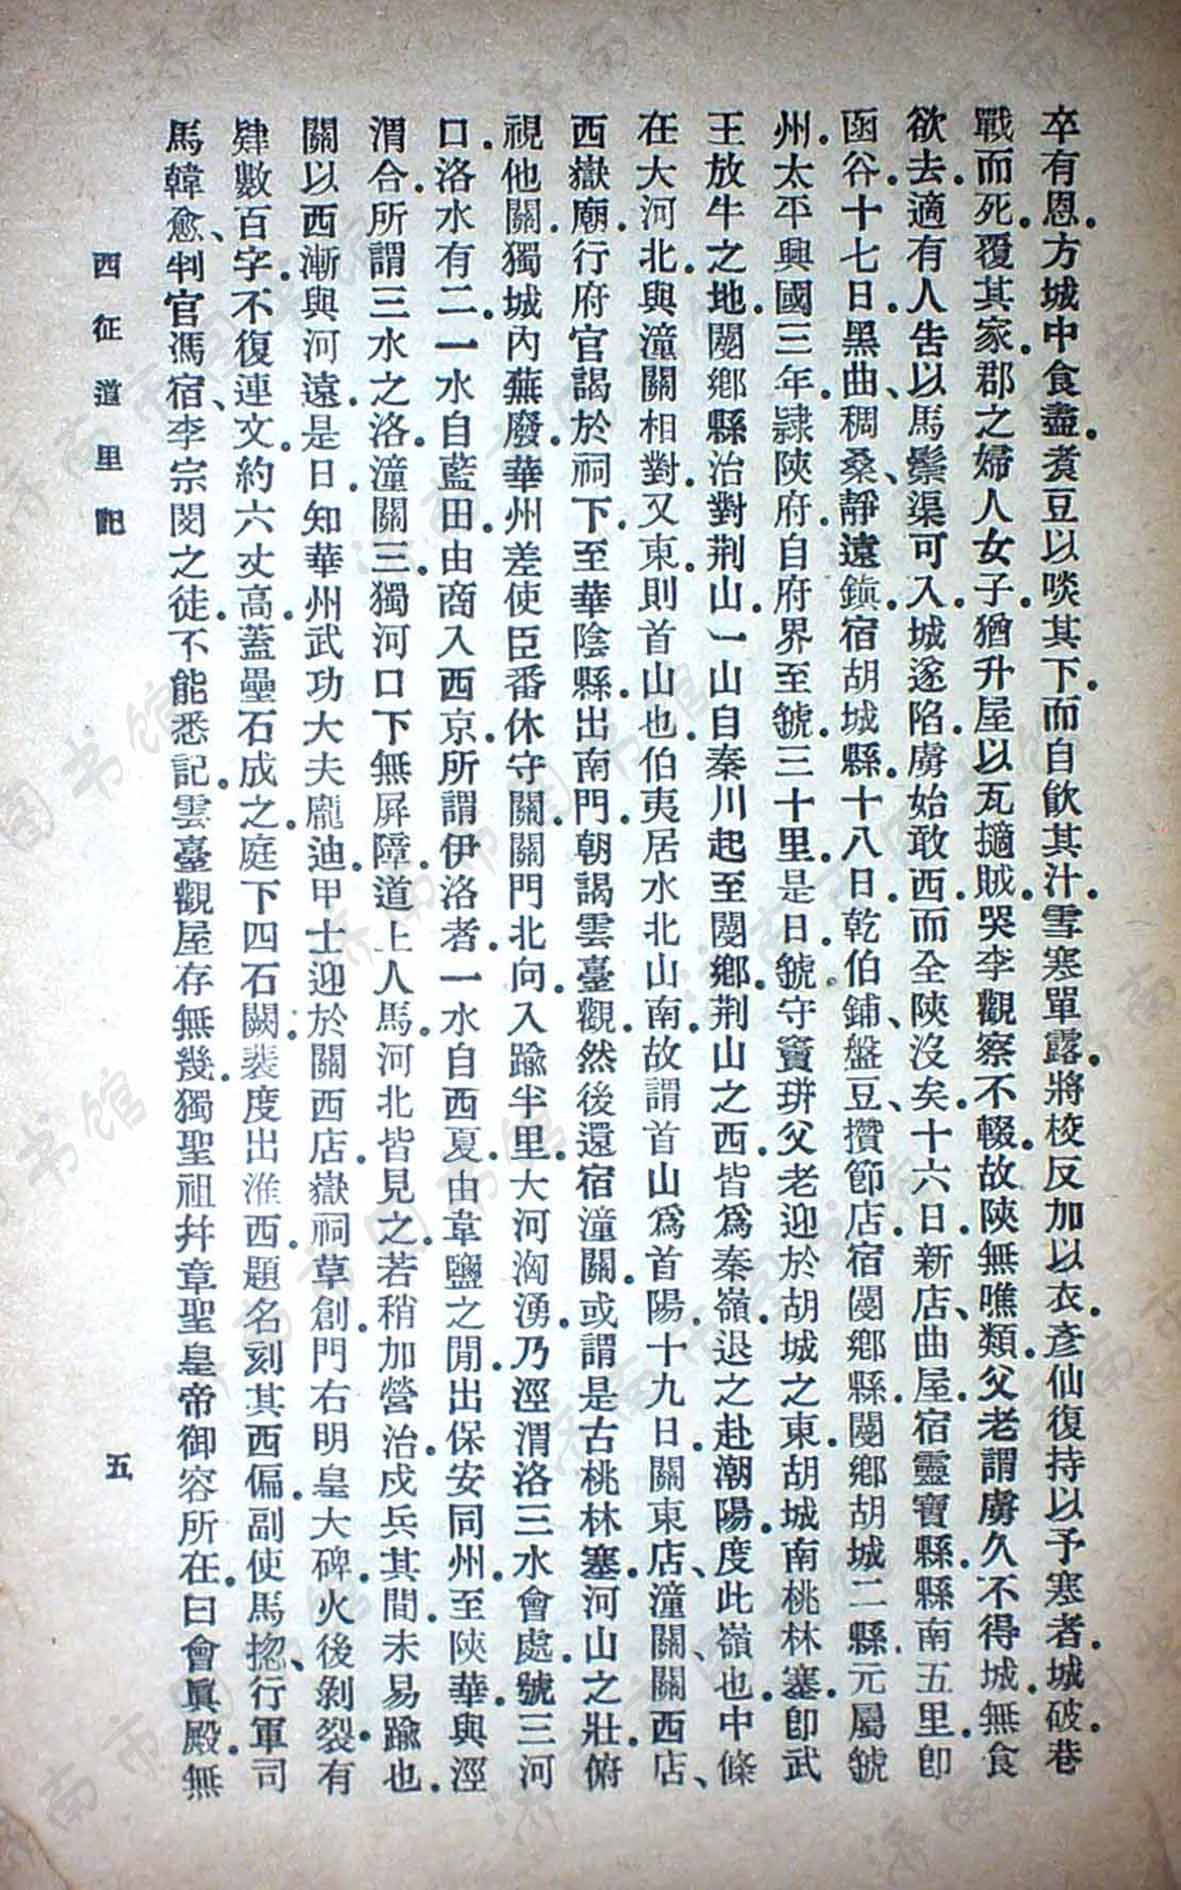 卒有恩。方城中食盡。煑豆以啖其下。而自飲其汁。雪寒單露。將校反加以衣。彥仙復持以予寒者。城破。巷
戰而死。覆其家。郡之婦人女子。猶升屋以瓦擿賊。哭李觀察不輟。故陝無噍類。父老謂虜久不得城。無食
欲去。適有人告以馬鬃渠可入。城遂陷。虜始敢西。而全陝沒矣。十六日。新店、曲屋。宿靈寶縣。縣南五里。卽
函谷。十七日。黑曲、稠桑。靜遠鎮。宿胡城縣。十八日。乾伯鋪、盤豆、攢節店。宿閿鄉縣。閿鄉胡城二縣。元屬虢
州。太平興國三年。隷陝府。自府界至虢。三十里。是日。虢守竇琲。父老迎於胡城之東。胡城南桃林塞。卽武
王放牛之地。閿鄉縣治對荆山。一山自秦川起。至閿鄉。荆山之西。皆爲秦嶺。退之赴潮陽。度此嶺也。中條
在大河北。與潼關相對。又東。則首山也。伯夷居水北山南。故謂首山爲首陽。十九日。關東店、潼關。關西店、
西嶽廟。行府官謁於祠下。至華陰縣。出南門。朝謁雲臺觀。然後還宿潼關。或謂是古桃林塞。河山之壯。俯
視他關。獨城內蕪廢。華州差使臣番休守關。關門北向。入踰半里。大河洶湧。乃涇渭洛三水會處。號三河
口。洛水有二。一水自藍田。由商入西京。所謂伊洛者。一水自西夏。由韋鹽之閒。出保安同州。至陝華。與涇
渭合。所謂三水之洛。潼關三。獨河口下無屏障。道上人馬。河北皆見之。若稍加營治。戍兵其間。未易踰也。
關以西漸與河遠。是日。知華州武功大夫龐迪。甲士迎於關西店。嶽祠草創。門右明皇大碑。火後剝裂。有
肄數百字。不復連文。約六丈高。蓋壘石成之。庭下四石闕。裴度出淮西。題名刻其西偏。副使馬揔、行軍司
馬韓愈、判官馮宿、李宗閔之徒。不能悉記。雲臺觀屋存無幾。獨聖祖幷章聖皇帝御容所在。曰會眞殿。無
西征道里記
五